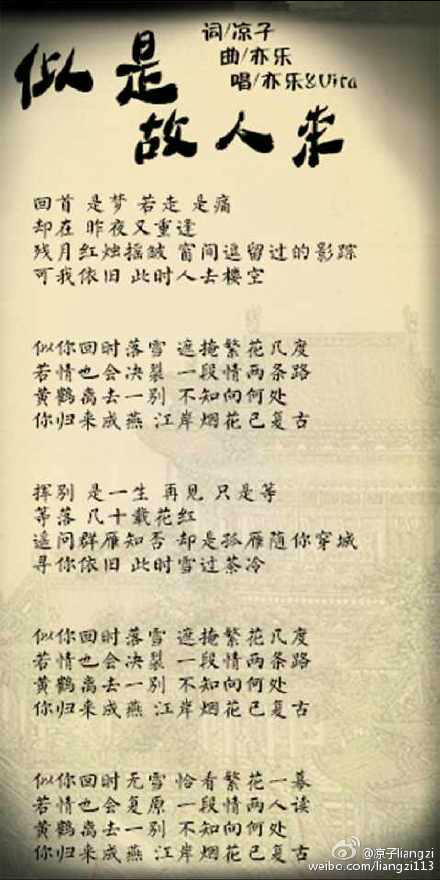 词/凉子
曲/亦乐
唱/亦乐&Vita
似是
故人来
回首 是梦 若走 是痛
却在 昨夜又重逢
残月红烛摇皱 窗间逗留过的影踪
可我依旧 此时人去楼空
似你回时落雪 遮掩繁花几度
若情也会决裂 一段情两条路
黄鹤离去一别 不知向何处
你归来成燕 江岸烟花已复古
挥别 是一生 再见 只是等
等落 几十载花红
遥问群雁知否 却是孤雁随你穿城
寻你依旧 此时雪过茶冷
似你回时落雪 遮掩繁花几度
若情也会决裂 一段情两条路
黄鹤离去一别 不知向何处
你归来成燕 江岸烟花已复古
似你回时无雪 恰看繁花一幕
若情也会复原 一段情两人读
黄鹤离去一别 不知向何处
你归来成燕 江岸烟花已复古
@凉子liangzi
weibo.com/liangzi113